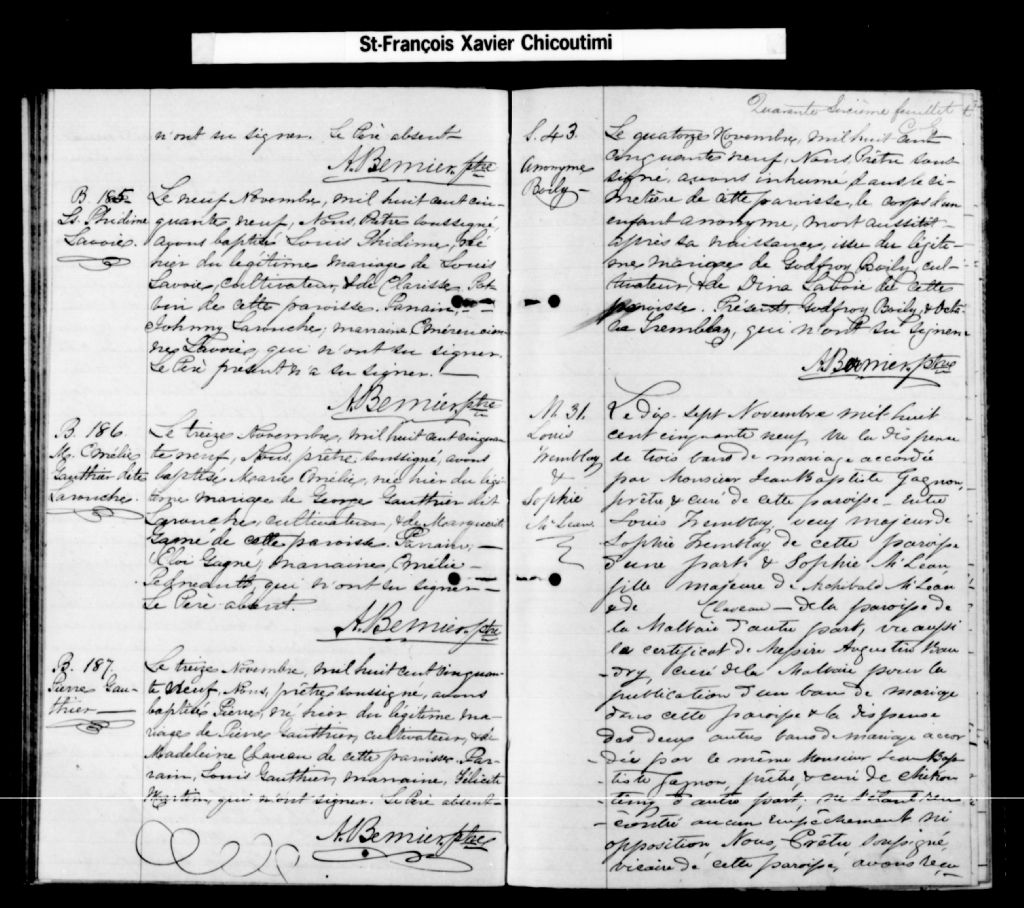 St-François Xavier Chicoutimi
n'ont su signer. Le Père absent
A. Bernier, ptre
B. 185
Ls. Phidime
Lavoie.
Le neuf Novembre, mil huit cent cin-
quante neuf, Nous, Prêtre soussigné,
avons baptisé Louis Phidime, né
hier du légitime mariage de Louis
Lavoie, cultivateur, & de Clarisse
de cette paroisse. Parrain,
Johnny Larouche; marraine Emérencien-
ne Lavoie, qui n'ont su signer.
Le Père présent n'a su signer.
A. Bernier, ptre
B. 186.
M. Emélie
Gauthier dit
Larouche.
Le treize Novembre, mil huit cent cinquan-
te neuf, Nous, prêtre soussigné, avons
baptisé Marie Emélie, née hier du légi-
time mariage de George Gauthier dit
Larouche, cultivateur, & de Marguerite
Gagné de cette paroisse. Parrain,
Eloi Gagné; marraine, Emélie
qui n'ont su signer
Le Père absent.
A. Bernier, ptre
B. 187
Pierre Gau-
thier
Le treize Novembre, mil huit cent cinquan-
te neuf, Nous, prêtre soussigné, avons
baptisé Pierre, né hier du légitime ma-
riage de Pierre Gauthier, cultivateur, & de
Madeleine Claveau de cette paroisse. Par-
rain, Louis Gauthier, marraine, Félicité
Martin, qui n'ont signer. Le Père absent
A. Bernier, ptre
Quarante Sixième feuillet
S. 43.
Anonyme
Boily
Le quatorze Novembre, mil huit cent
cinquante neuf, Nous, Prêtre sous
signé, avons inhumé dans le ci-
metière de cette paroisse, le corps d'un
enfant anonyme, mort aussitôt
après sa naissance, issu du légiti-
me mariage de Godfroy Boily cul-
tivateur, & de Dina Lavoie de cette
paroisse. Présents, Godfroy Boily, & Octa-
Tremblay, qui n'ont su signer
A. Bernier, ptre
M. 31.
Louis
Tremblay
&
Sophie
McLean.
Le dix-sept Novembre mil huit
cent cinquante neuf, vu la dispense
de trois bans de mariage accordée
par Monsieur Jean Baptiste Gagnon,
prêtre & curé de cette paroisse entre
Louis Tremblay, veuf majeur de
Sophie Tremblay de cette paroisse
d'une part; & Sophie McLean
fille majeure d'Archibald McLean
& de Claveau — de la paroisse de
la Malbaie d'autre part, vu aussi
le certificat de Messire Augustin Beau
dry, curé de la Malbaie pour la
publication d'un ban de mariage
dans cette paroisse & la dispense
des deux autres bans de mariage accor
dée par le même Monsieur Jean Bap-
tiste Gagnon, prêtre & curé de Chikou-
timy d'autre part; ne s'étant ren
contré aucun empêchement ni
opposition Nous, Prêtre soussigné,
vicaire de cette paroisse, avons reçu